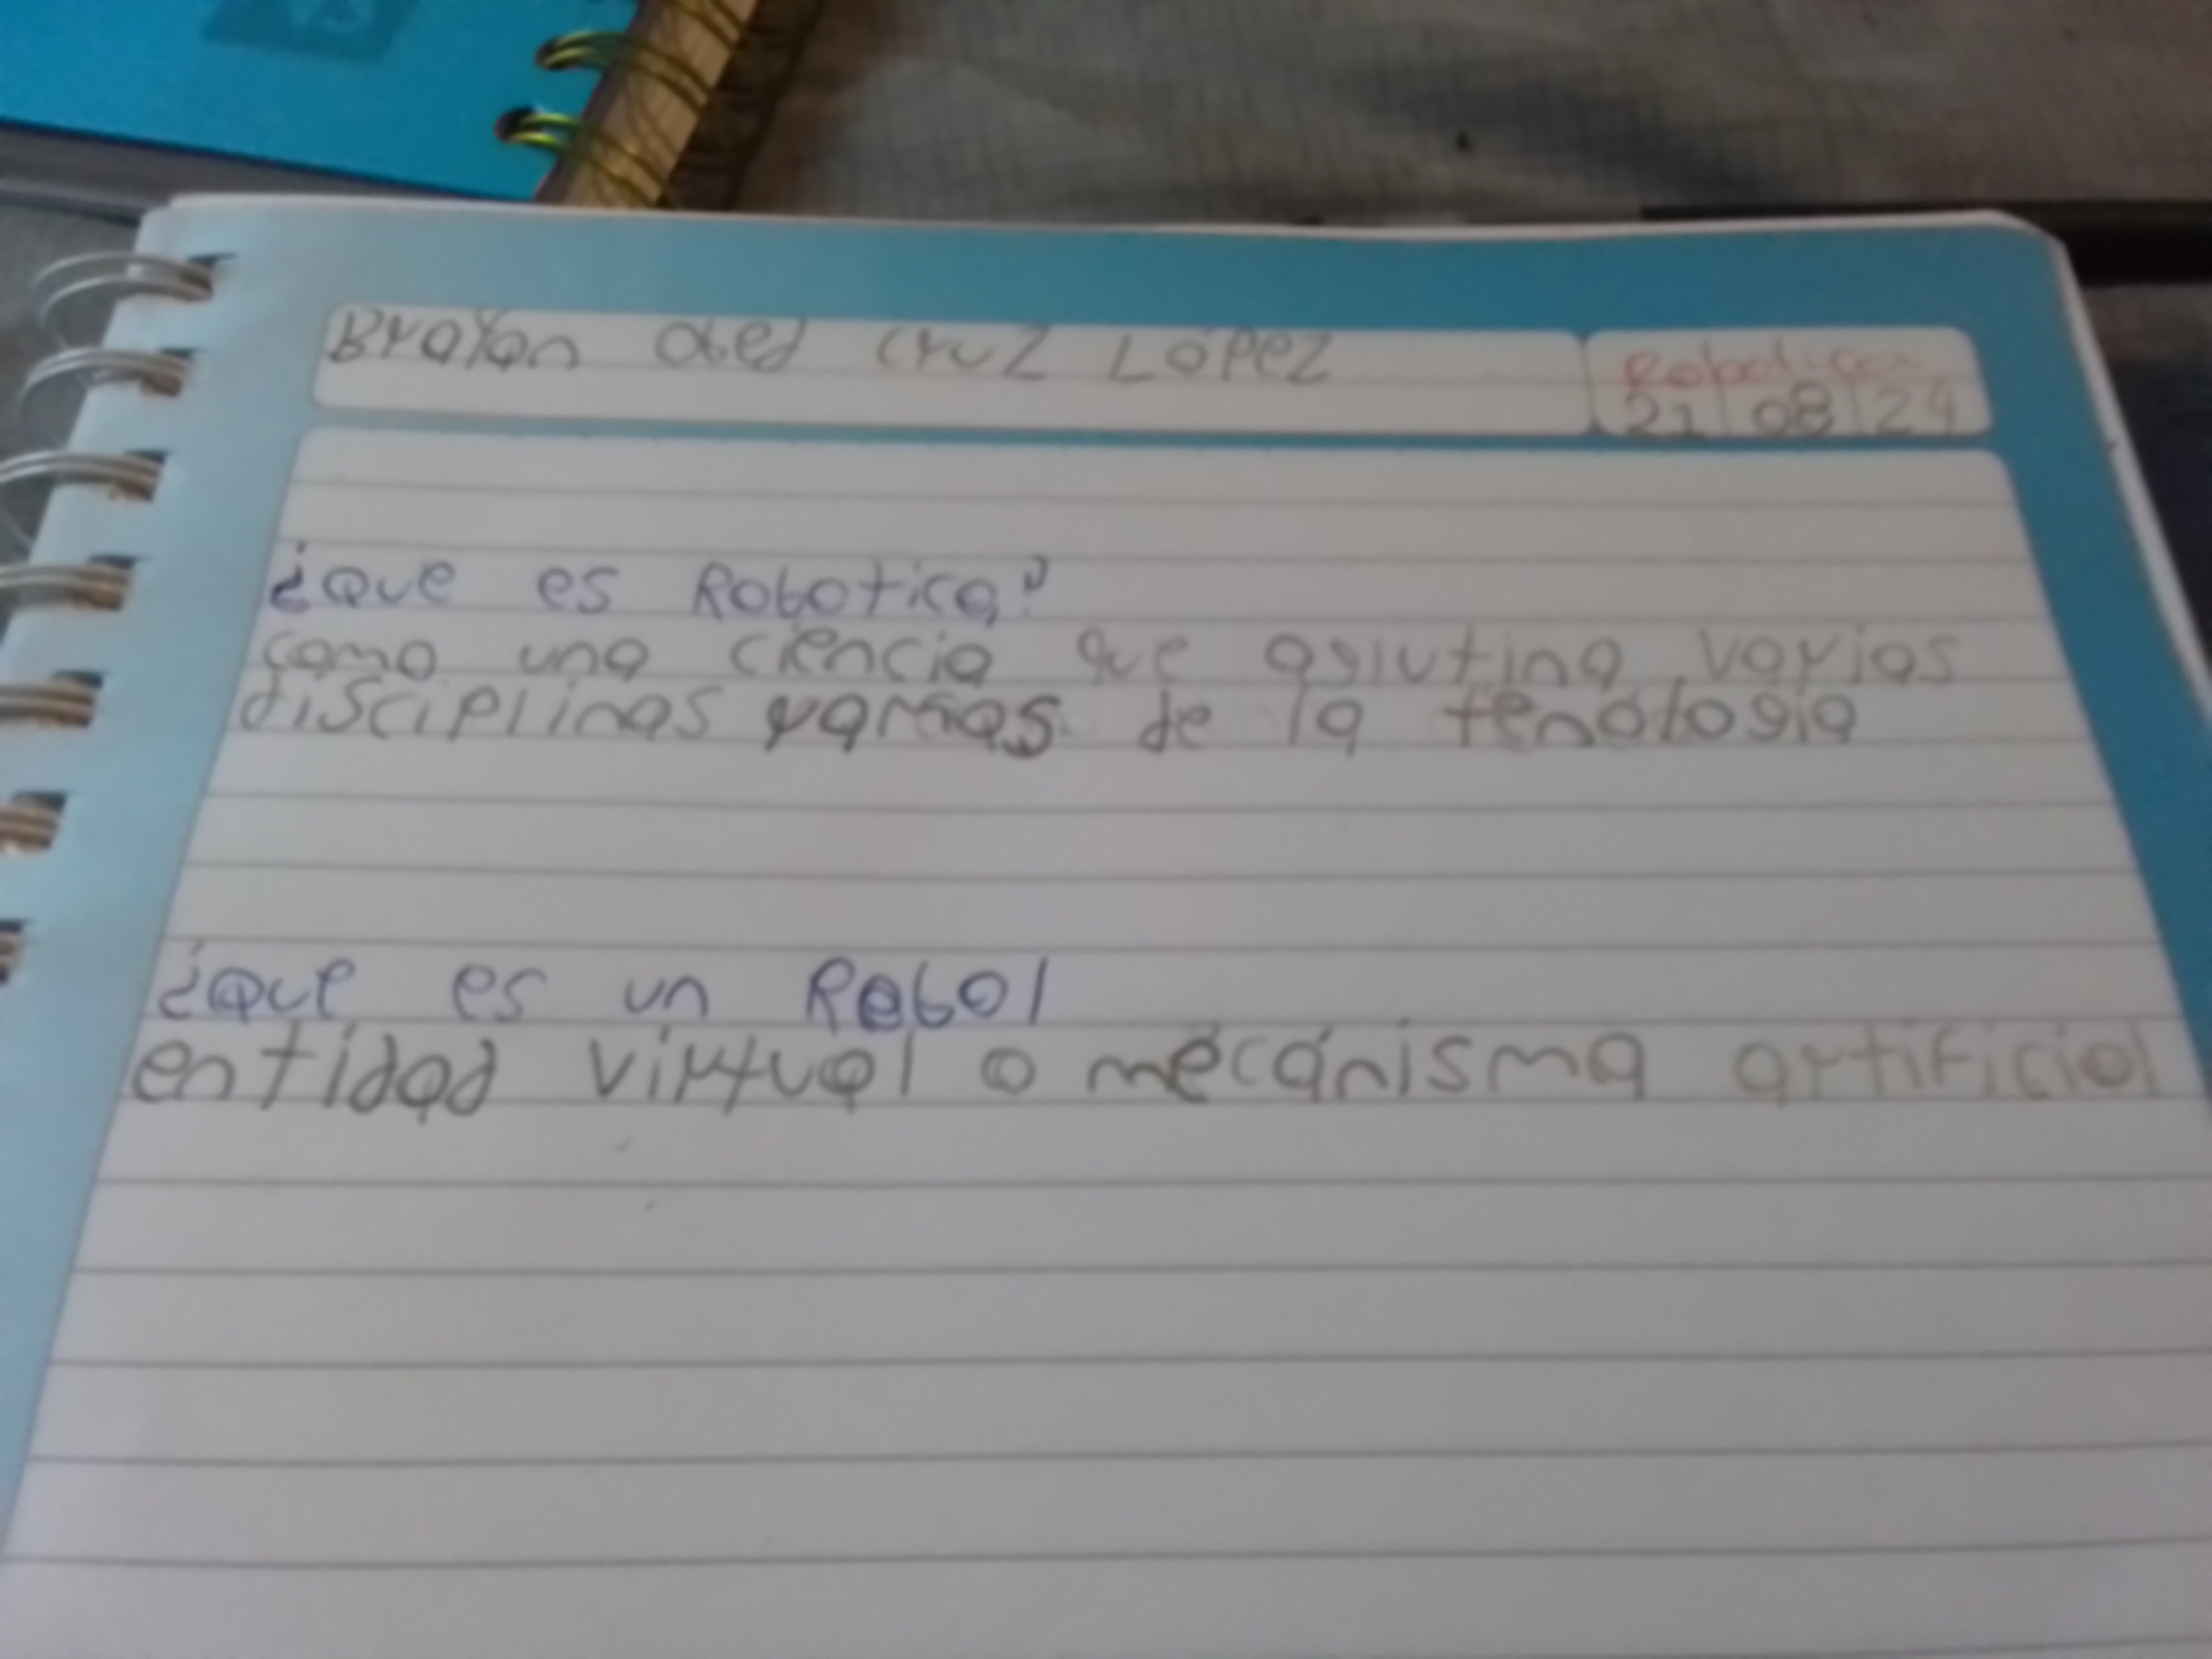 Brayan abed cruz López
Robotica
21 08 24
¿que es Robotica?
como una ciencia que aglutina varios
disciplinas varias de la tenología
¿que es un Robot
entidad virtual o mecánisma artificial